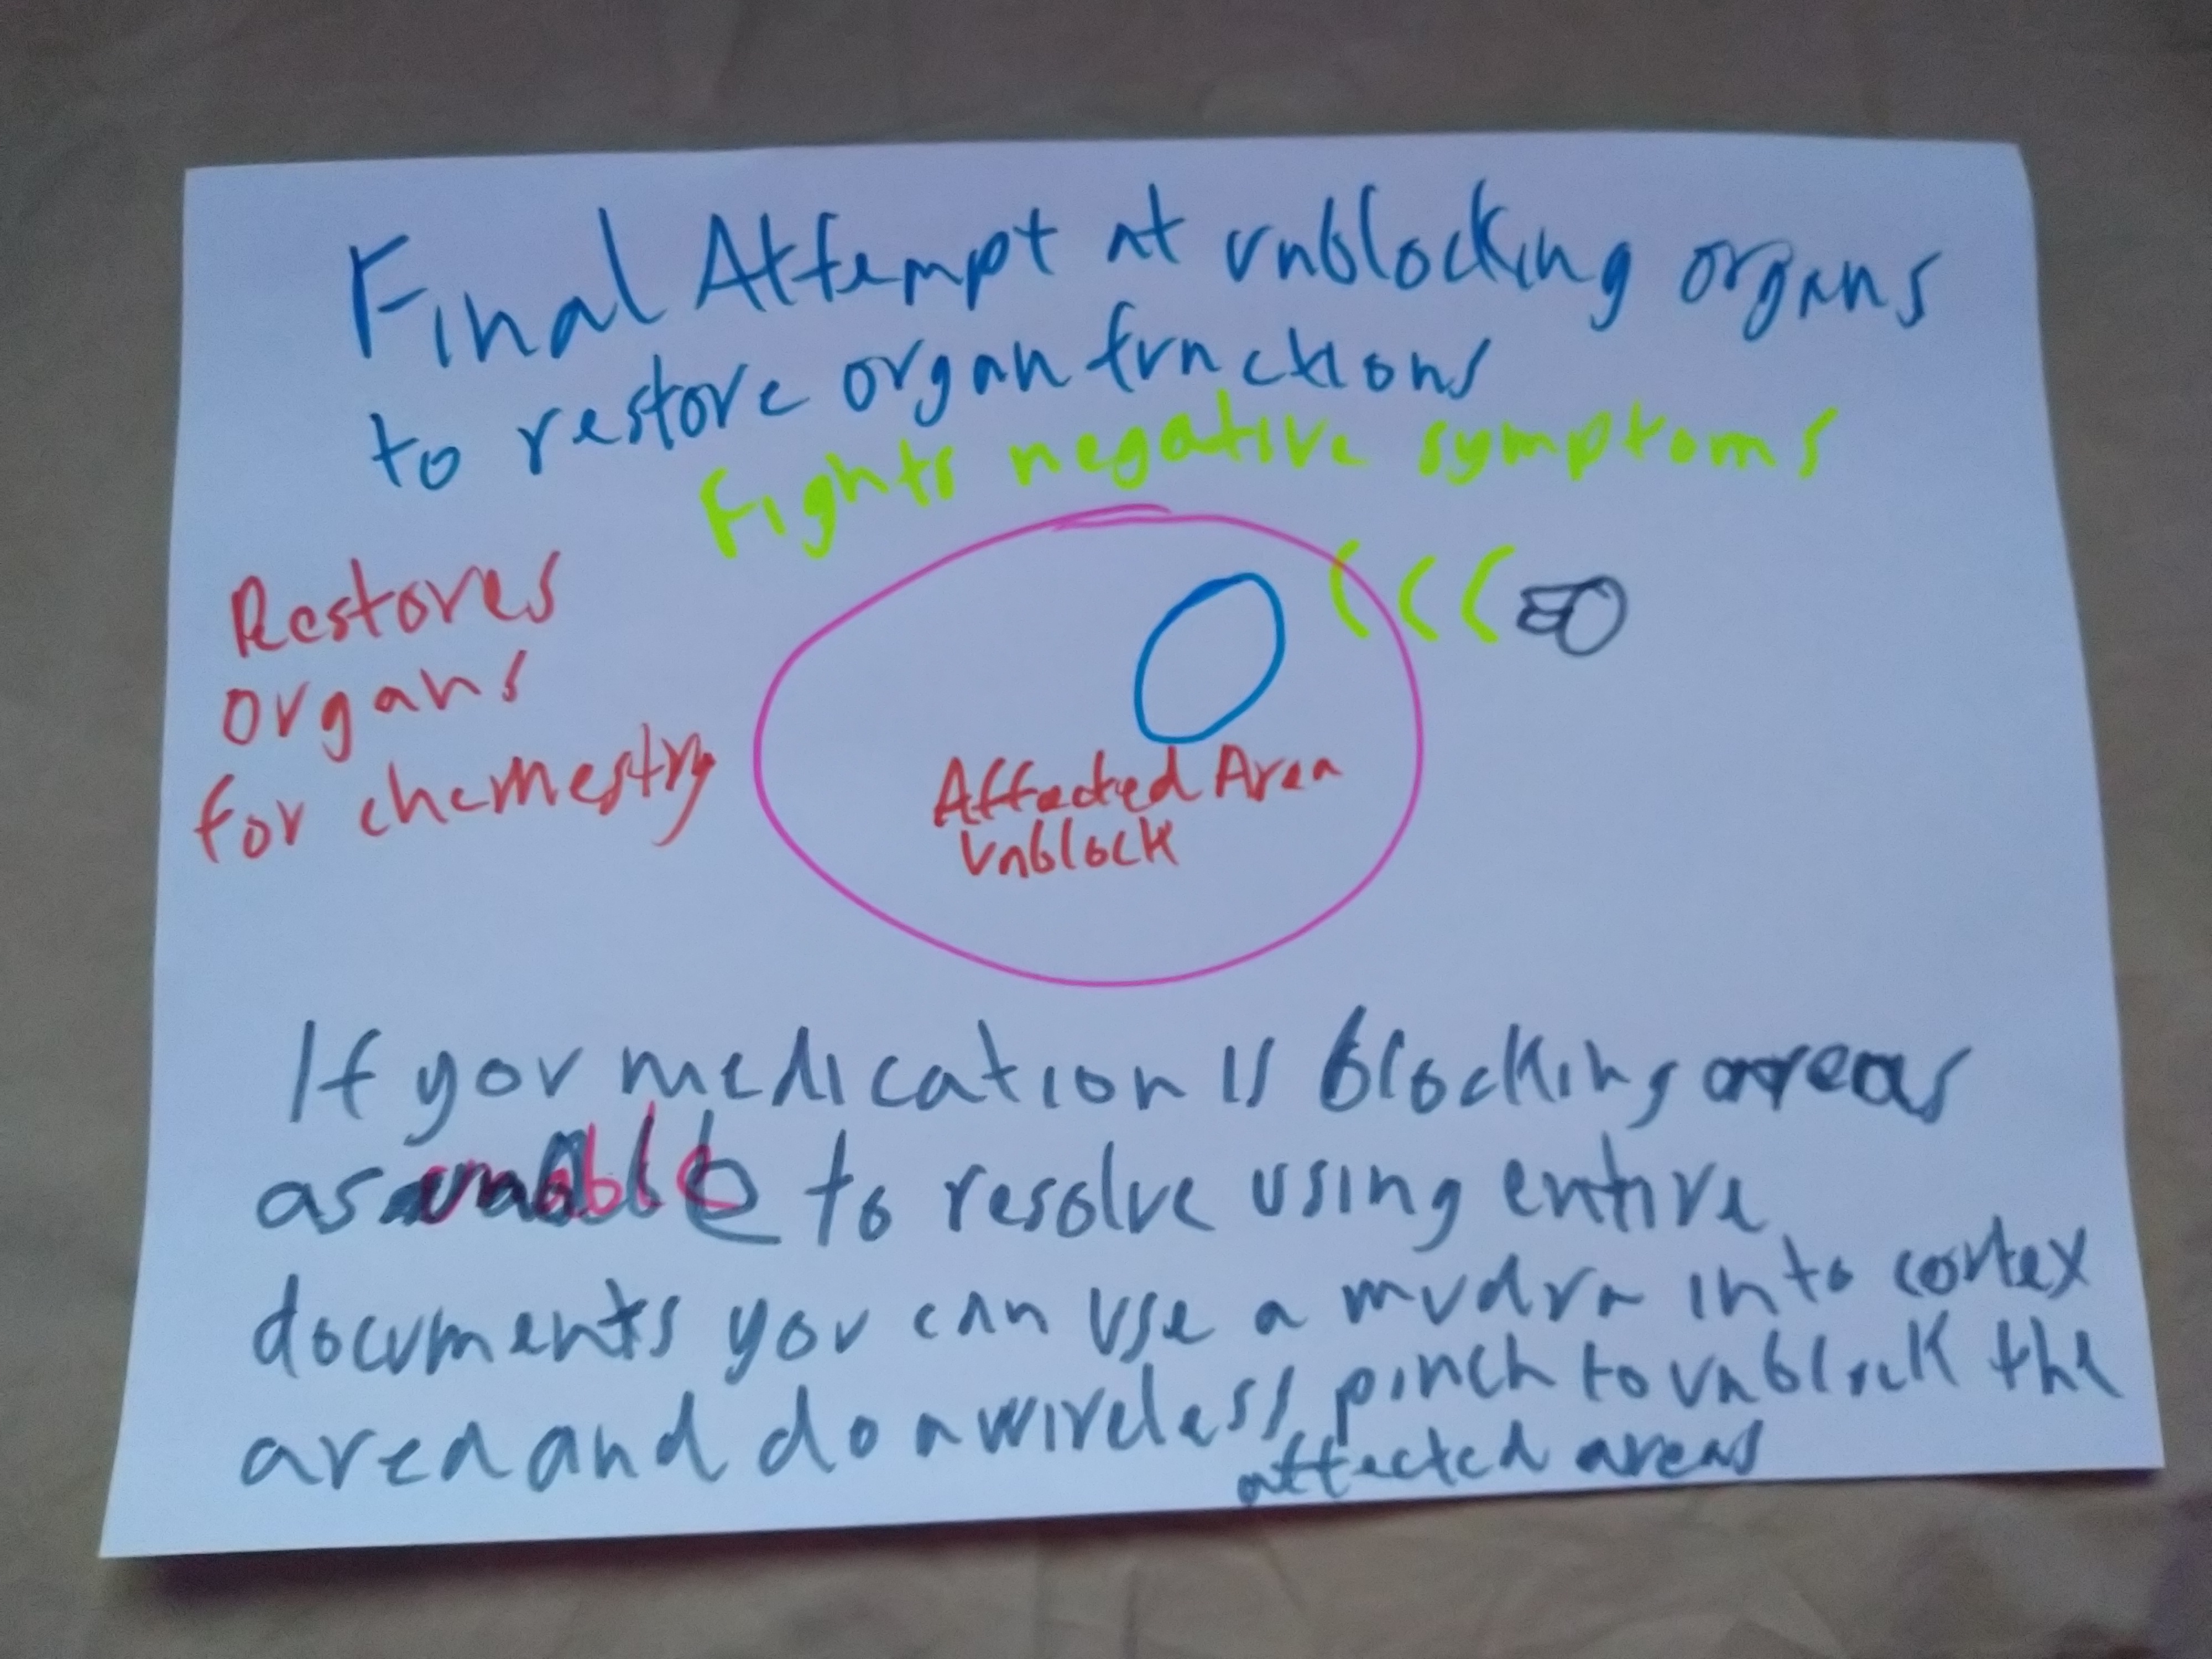 Final Attempt at unblocking organs
to restore organ functions
Fights negative symptoms
Restores
organs
for chemestry
Affected Area
Unblock
If your medication is blocking areas
as unable to resolve using entire
documents you can use a mudra into cortex
area and do a wireless pinch to unblock the
affected areas